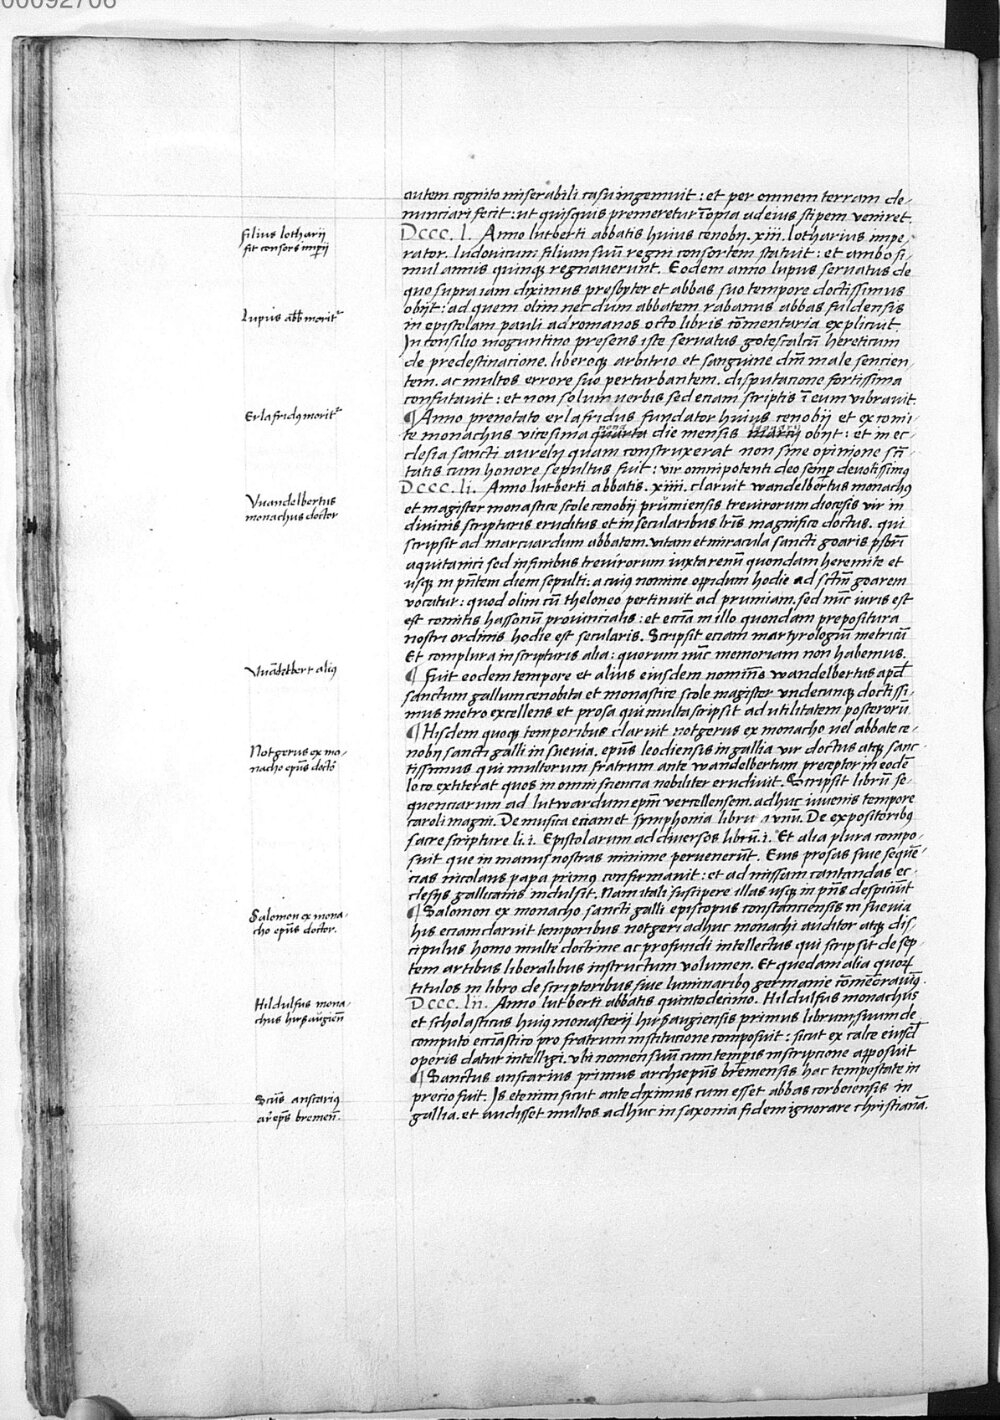 00092706
autem cognito miserabili casu ingemuit : et per omnem terram de-
nunciari fecit : ut quisquis premeretur īopia ad eius stipem veniret.
Dccc. l. Anno lutberti abbatis huius cenobij. xiii. lotharius impe-
rator. ludovicum filium suū regni consortem statuit : et ambo si-
mul annis quinq3 regnaverunt. Eodem anno lupus servatus de
quo supra iam diximus presbyter et abbas suo tempore doctissimus
obijt : ad quem olim nec dum abbatem rabanus abbas fuldensis
in epistolam pauli ad romanos octo libris cōmentaria explicuit.
In consilio moguntino presens iste servatus gotescalcū hereticum
de predestinacione. liberoq3 arbitrio et sanguine dm̄ male sencien-
tem. ac multos errore suo perturbantem. disputacione fortissima
confutavit : et non solum verbis sed eciam scriptis ī eum vibravit.
¶ Anno prenotato erlafridus fundator huius cenobij et ex comi-
te monachus vicesima quarta die mensis martij obijt : et in ec-
clesia sancti aurelij quam construxerat non sine opinione scti-
tatis cum honore sepultus fuit : vir omnipotenti deo semp devotissimus
Dccc. li. Anno lutberti abbatis. xiiii. claruit wandelbertus monachus
et magister monastice scole cenobij prūmiensis trevirorum diocesis vir in
divinis scripturis eruditus et in secularibus lris magnifice doctus. qui
scripsit ad marcuardum abbatem. vitam et miracula sancti goaris psbri
aquitanici sed in finibus trevirorum iuxta renū quondam heremite et
usq3 in pn̄tem diem sepulti : a cuius nomine oppidum hodie ad sctm̄ goarem
vocatur : quod olim cū theloneo pertinuit ad prumiam. sed nūc iuris est
est comitis hassonū provincialis : et eciā in illo quondam prepositura
nostri ordinis hodie est secularis. Scripsit eciam martyrologiū metricū
Et complura in scripturis alia : quorum nūc memoriam non habemus.
¶ Fuit eodem tempore et alius eiusdem nominis wandelbertus apd
sanctum gallum cenobita et monastice scole magister undecunq3 doctissi-
mus metro excellens et prosa qui multa scripsit ad utilitatem posterorū
¶ Hisdem quoq3 temporibus claruit notgerus ex monacho vel abbate ce-
nobij sancti galli in suevia. epūs leodiensis in gallia vir doctus atq3 sanc-
tissimus qui multorum fratrum ante wandelbertum preceptor in eodē
loco extiterat quos in omni sciencia nobiliter erudivit. Scripsit librū se-
quenciarum ad lutwardum epm̄ vercellensem. adhuc iuvenis tempore
caroli magni. De musica eciam et symphonia libru unū. De expositoribus
sacre scripture li. i. Epistolarum ad diversos librū. i. Et alia plura compo-
suit que in manus nostras minime pervenerūt. Eius prosas sive sequē-
cias nicolaus papa primus confirmavit : et ad missam cantandas ec-
clesijs gallicanis indulsit. Nam itali suscipere illas usq3 in pn̄s despiciūt
¶ Salomon ex monacho sancti galli episcopus constanciensis in suevia
his eciam claruit temporibus notgeri adhuc monachi auditor atq3 dis-
cipulus homo multe doctrine ac profundi intellectus qui scripsit de sep-
tem artibus liberalibus instructum volumen. Et quedam alia quor
titulos in libro de scriptoribus sive luminaribus germanie cōmemoravimus.
Dccc. lii. Anno lutberti abbatis quintodecimo. Hildulfus monachus
et scholasticus huius monasterij hirsaugiensis primus librum suum de
computo ecciastico pro fratrum institucione composuit : sicut ex calce eiusd
operis datur intelligi. ubi nomen suū cum temporis inscripcione apposuit
¶ Sanctus anscarius primus archiepūs bremensis hac tempestate in
precio fuit. Is etenim sicut ante diximus cum esset abbas corbeiensis in
gallia. et audisset multos adhuc in saxonia fidem ignorare christianā.
filius lotharij
fit consors imperij
Lupus abb moritur
Erlafridus moritur
Wandelbertus
monachus doctor
Wandelbert alius
Notgerus ex mo-
nacho epūs doctor
Salomon ex mona-
cho epūs doctor.
Hildulfus mona-
chus hirsaugien
Scūs anscarius
arepus bremen.